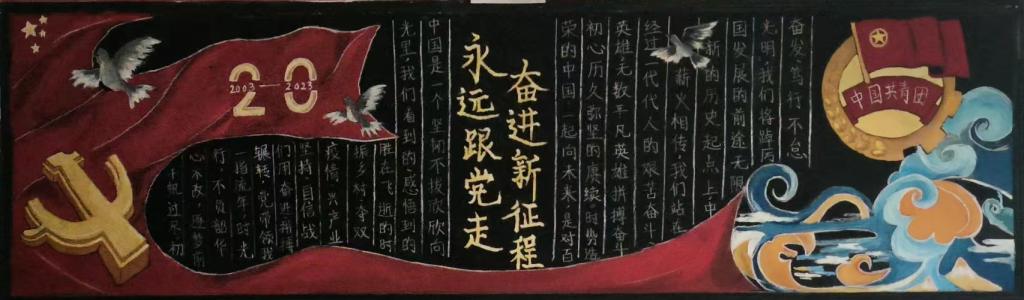 20
2003—2023
千帆过尽,初
心不改,逐梦前
行,不负韶华
一指流年,时光
辗转,党带领我
们用奋进拼搏
坚持自信战
疫情兴产业
振乡村,夺双
胜在飞逝的时
光里,我们看到的、感悟到的
中国是一个坚韧不拔欣欣向
永远跟党走
奋进新征程
荣的中国一起向未来,是对百
初心历久弥坚的赓续时势造
英雄无数平凡英雄拼搏奋斗
经过一代代人的艰苦奋斗、
薪火相传,我们站在
新的历史起点上中
国发展的前途无限
光明,我们将踔厉
奋发,笃行不怠
中国共青团